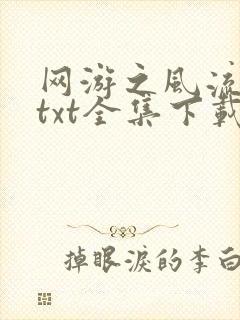 网游之风流
txt全集下载
掉眼泪的李白